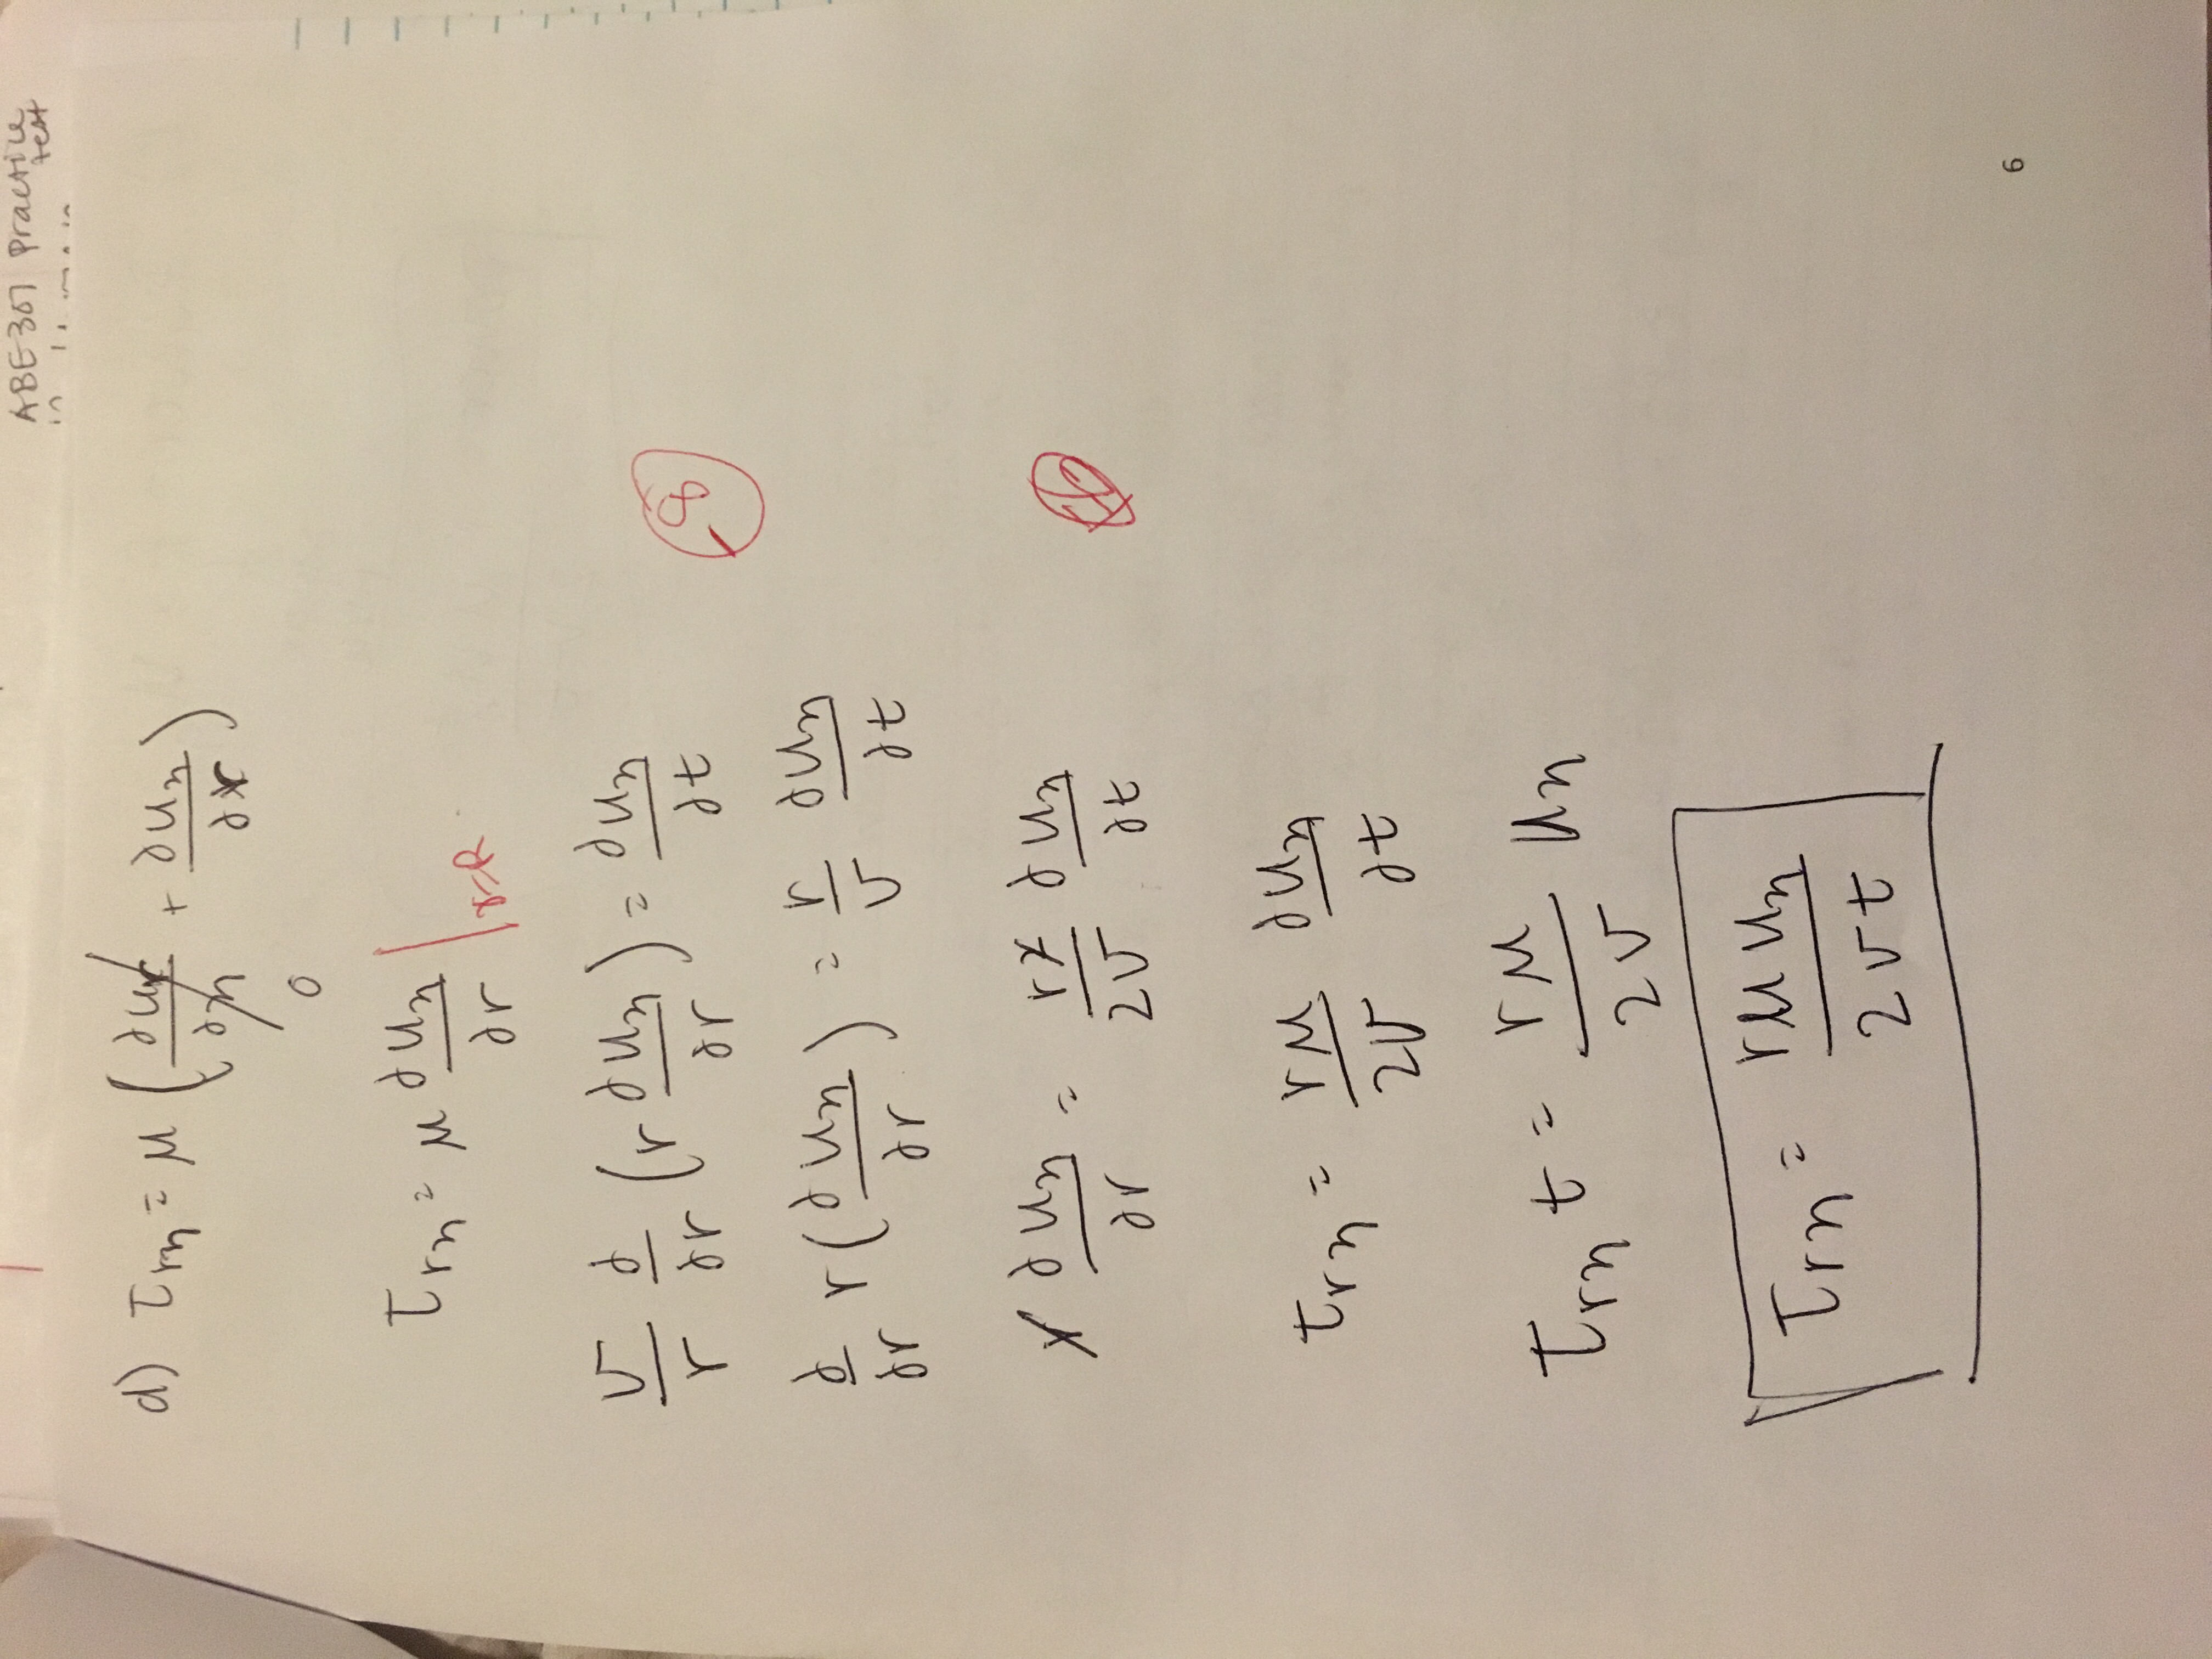 ABE307 Practice
test
d) τrx = μ (∂ur/∂x + ∂ux/∂r)
0
τrx = μ ∂ux/∂r |r=R
ν/r ∂/∂r (r ∂ux/∂r) = ∂ux/∂t
-8
∂/∂r r(∂ux/∂r) = r/ν ∂ux/∂t
r ∂ux/∂r = r²/2ν ∂ux/∂t
τrx = rμ/2ν ∂ux/∂t
τrx t = rμ/2ν ux
τrx = rμ ux/2νt
6